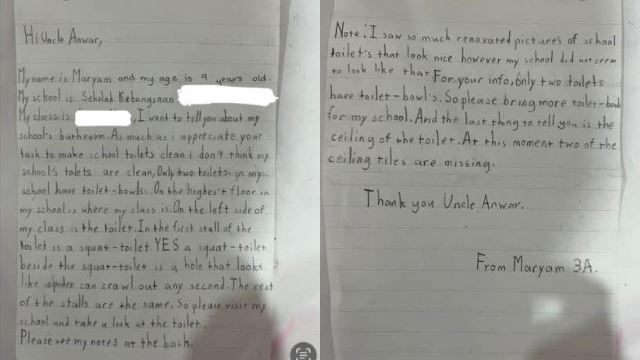 Hi Uncle Anwar,
My name is Maryam and my age is 9 years old.
My school is Sekolah Kebangsaan
My class is , I want to tell you about my
school's bathroom. As much as i appreciate your
task to make school toilets clean i don't think my
school's tolets are clean, Only two toilets in my
school have toilet-bowls. On the highest floor in
my school is where my class is. On the left side of
my class is the toilet. In the first stall of the
toilet is a squat-toilet YES a squat-toilet
beside the squat-toilet is a hole that looks
like spider can crawl out any second. The rest
of the stalls are the same. So please visit my
school and take a look at the toilet.
Please see my notes at the back.
Note: I saw so much renovated pictures of school
toilet's that look nice however my school did not seem
to look like that. For your info, only two toilets
have toilet-bowl's. So please bring more toilet-bowl
for my school. And the last thing to tell you is the
ceiling of the toilet. At this moment two of the
ceiling tiles are missing.
Thank you Uncle Anwar.
From Maryam 3A.